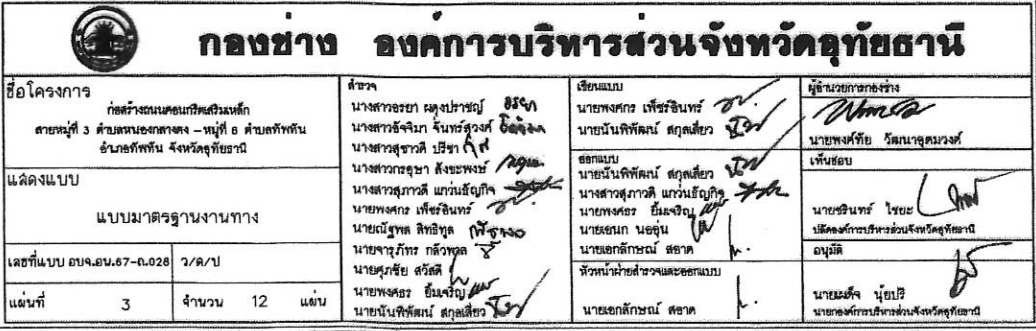 กองช่าง องค์การบริหารส่วนจังหวัดอุทัยธานี
ชื่อโครงการ
ก่อสร้างถนนคอนกรีตเสริมเหล็ก
สายหมู่ที่ 3 ตำบลหนองกลางดง - หมู่ที่ 6 ตำบลทัพทัน
อำเภอทัพทัน จังหวัดอุทัยธานี
แสดงแบบ
แบบมาตรฐานงานทาง
เลขที่แบบ อบจ.อน.67-ถ.028 ว/ด/ป
แผ่นที่ 3 จำนวน 12 แผ่น
สำรวจ
นางสาวอรยา ผดุงปราชญ์ อรยา
นางสาวอัจจิมา จันทร์สุวงศ์
นางสาวสุชาวดี ปรีชา
นางสาวกรอุษา สังขะพงษ์
นางสาวสุภาวดี แกว่นธัญกิจ
นายพงศกร เพ็ชร์อินทร์
นายณัฐพล สิทธิทูล
นายจารุภัทร กล้วพวล
นายศุภชัย สวัสดี
นายพงศธร ยิ้มเจริญ
นายนันทิพัฒน์ สกุลเสี่ยว
เขียนแบบ
นายพงศกร เพ็ชร์อินทร์
นายนันพิพัฒน์ สกุลเสี่ยว
ออกแบบ
นายนันพิพัฒน์ สกุลเสี่ยว
นางสาวสุภาวดี แกว่นธัญกิจ
นายพงศธร ยิ้มเจริญ
นายเอนก นออุ่น
นายเอกลักษณ์ สอาด
หัวหน้าฝ่ายสำรวจและออกแบบ
นายเอกลักษณ์ สอาด
ผู้อำนวยการกองช่าง
นายพงศ์ทัย วัฒนาอุดมวงศ์
เห็นชอบ
นายชรินทร์ ไชยะ
ปลัดองค์การบริหารส่วนจังหวัดอุทัยธานี
อนุมัติ
นายเผด็จ นุ้ยปรี
นายกองค์การบริหารส่วนจังหวัดอุทัยธานี